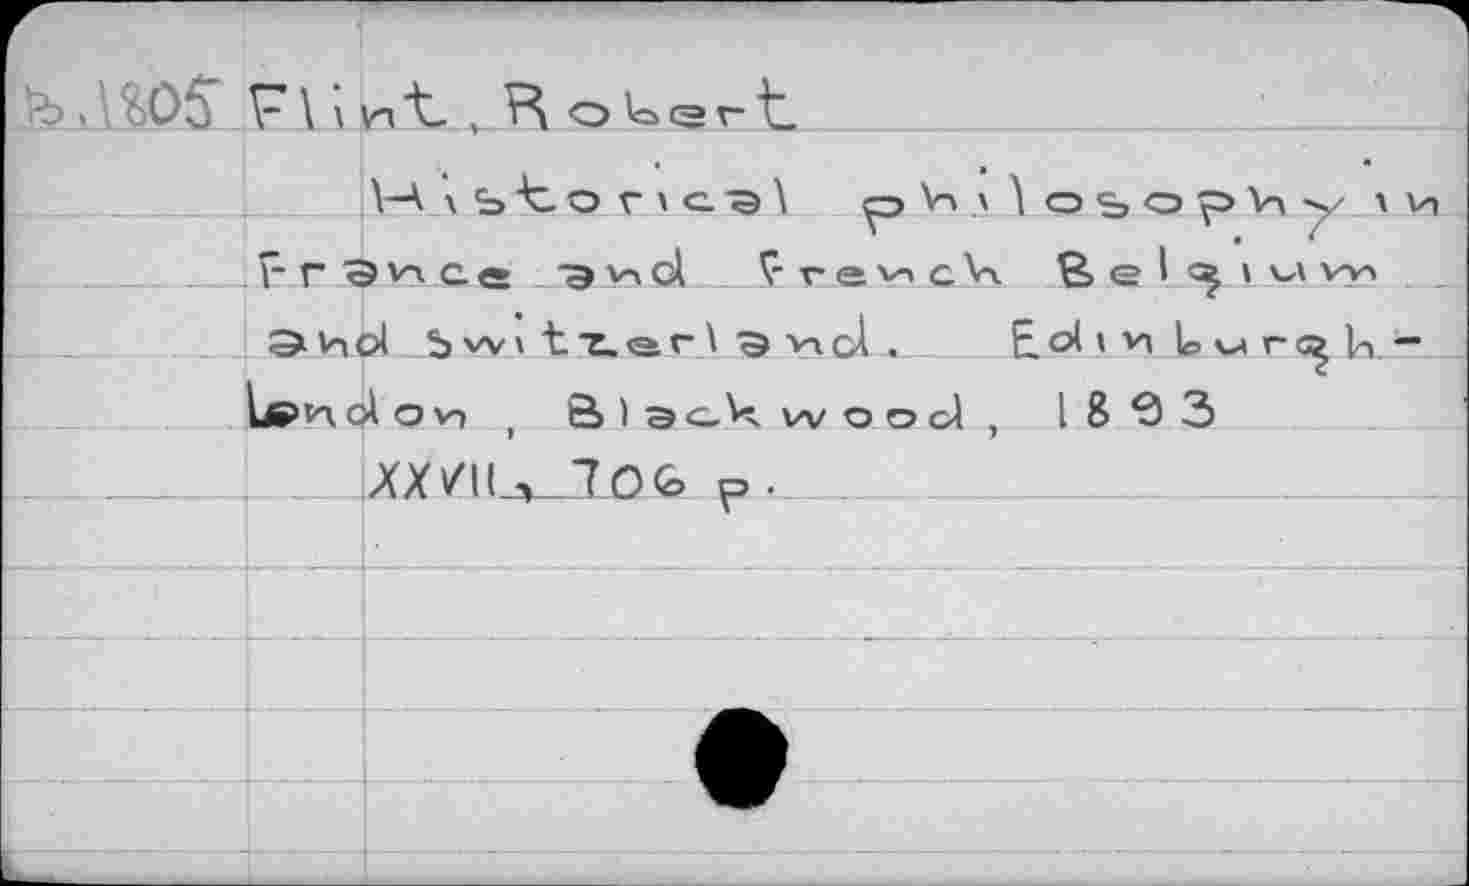 B.1805 Flint, Robert
Historical philosophy in
France and French Belgium
and Switzerland. Edinburgh-
London, Blackwood, 1893
XXVII, 706 p.